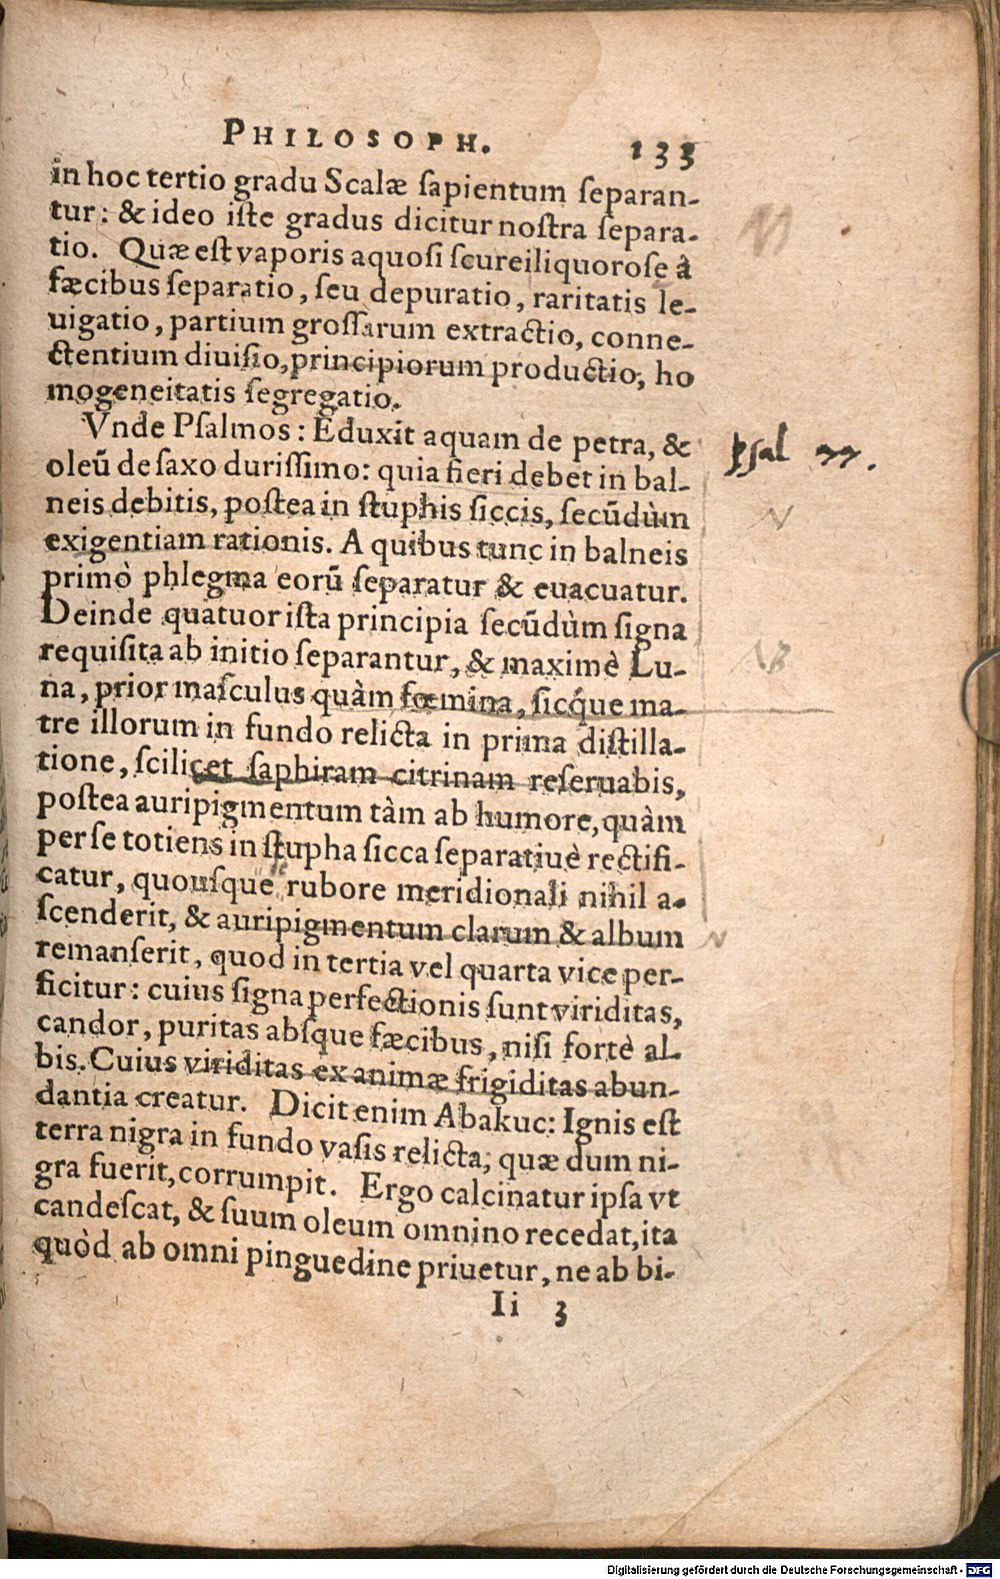 PHILOSOPH. 133
in hoc tertio gradu Scalæ sapientum separan-
tur: & ideo iste gradus dicitur nostra separa-
tio. Quæ est vaporis aquosi scureiliquorose à
fæcibus separatio, seu depuratio, raritatis le-
uigatio, partium grossarum extractio, conne-
ctentium diuisio, principiorum productio, ho
mogeneitatis segregatio.
Vnde Psalmos: Eduxit aquam de petra, &
Psal 77.
oleū de saxo durissimo: quia fieri debet in bal-
neis debitis, postea in stuphis siccis, secūdùm
N
exigentiam rationis. A quibus tunc in balneis
primò phlegma eorū separatur & euacuatur.
Deinde quatuor ista principia secūdùm signa
requisita ab initio separantur, & maximè Lu-
NB
na, prior masculus quàm fœmina, sicq́ue ma-
tre illorum in fundo relicta in prima distilla-
tione, scilicet saphiram citrinam reseruabis,
postea auripigmentum tàm ab humore, quàm
per se totiens in stupha sicca separatiuè rectifi-
catur, quousque rubore meridionali nihil a-
scenderit, & auripigmentum clarum & album
N
remanserit, quod in tertia vel quarta vice per-
ficitur: cuius signa perfectionis sunt viriditas,
candor, puritas absque fæcibus, nisi fortè al-
bis. Cuius viriditas ex animæ frigiditas abun-
dantia creatur. Dicit enim Abakuc: Ignis est
terra nigra in fundo vasis relicta, quæ dum ni-
gra fuerit, corrumpit. Ergo calcinatur ipsa vt
candescat, & suum oleum omnino recedat, ita
quòd ab omni pinguedine priuetur, ne ab bi-
Ii 3
Digitalisierung gefördert durch die Deutsche Forschungsgemeinschaft - DFG